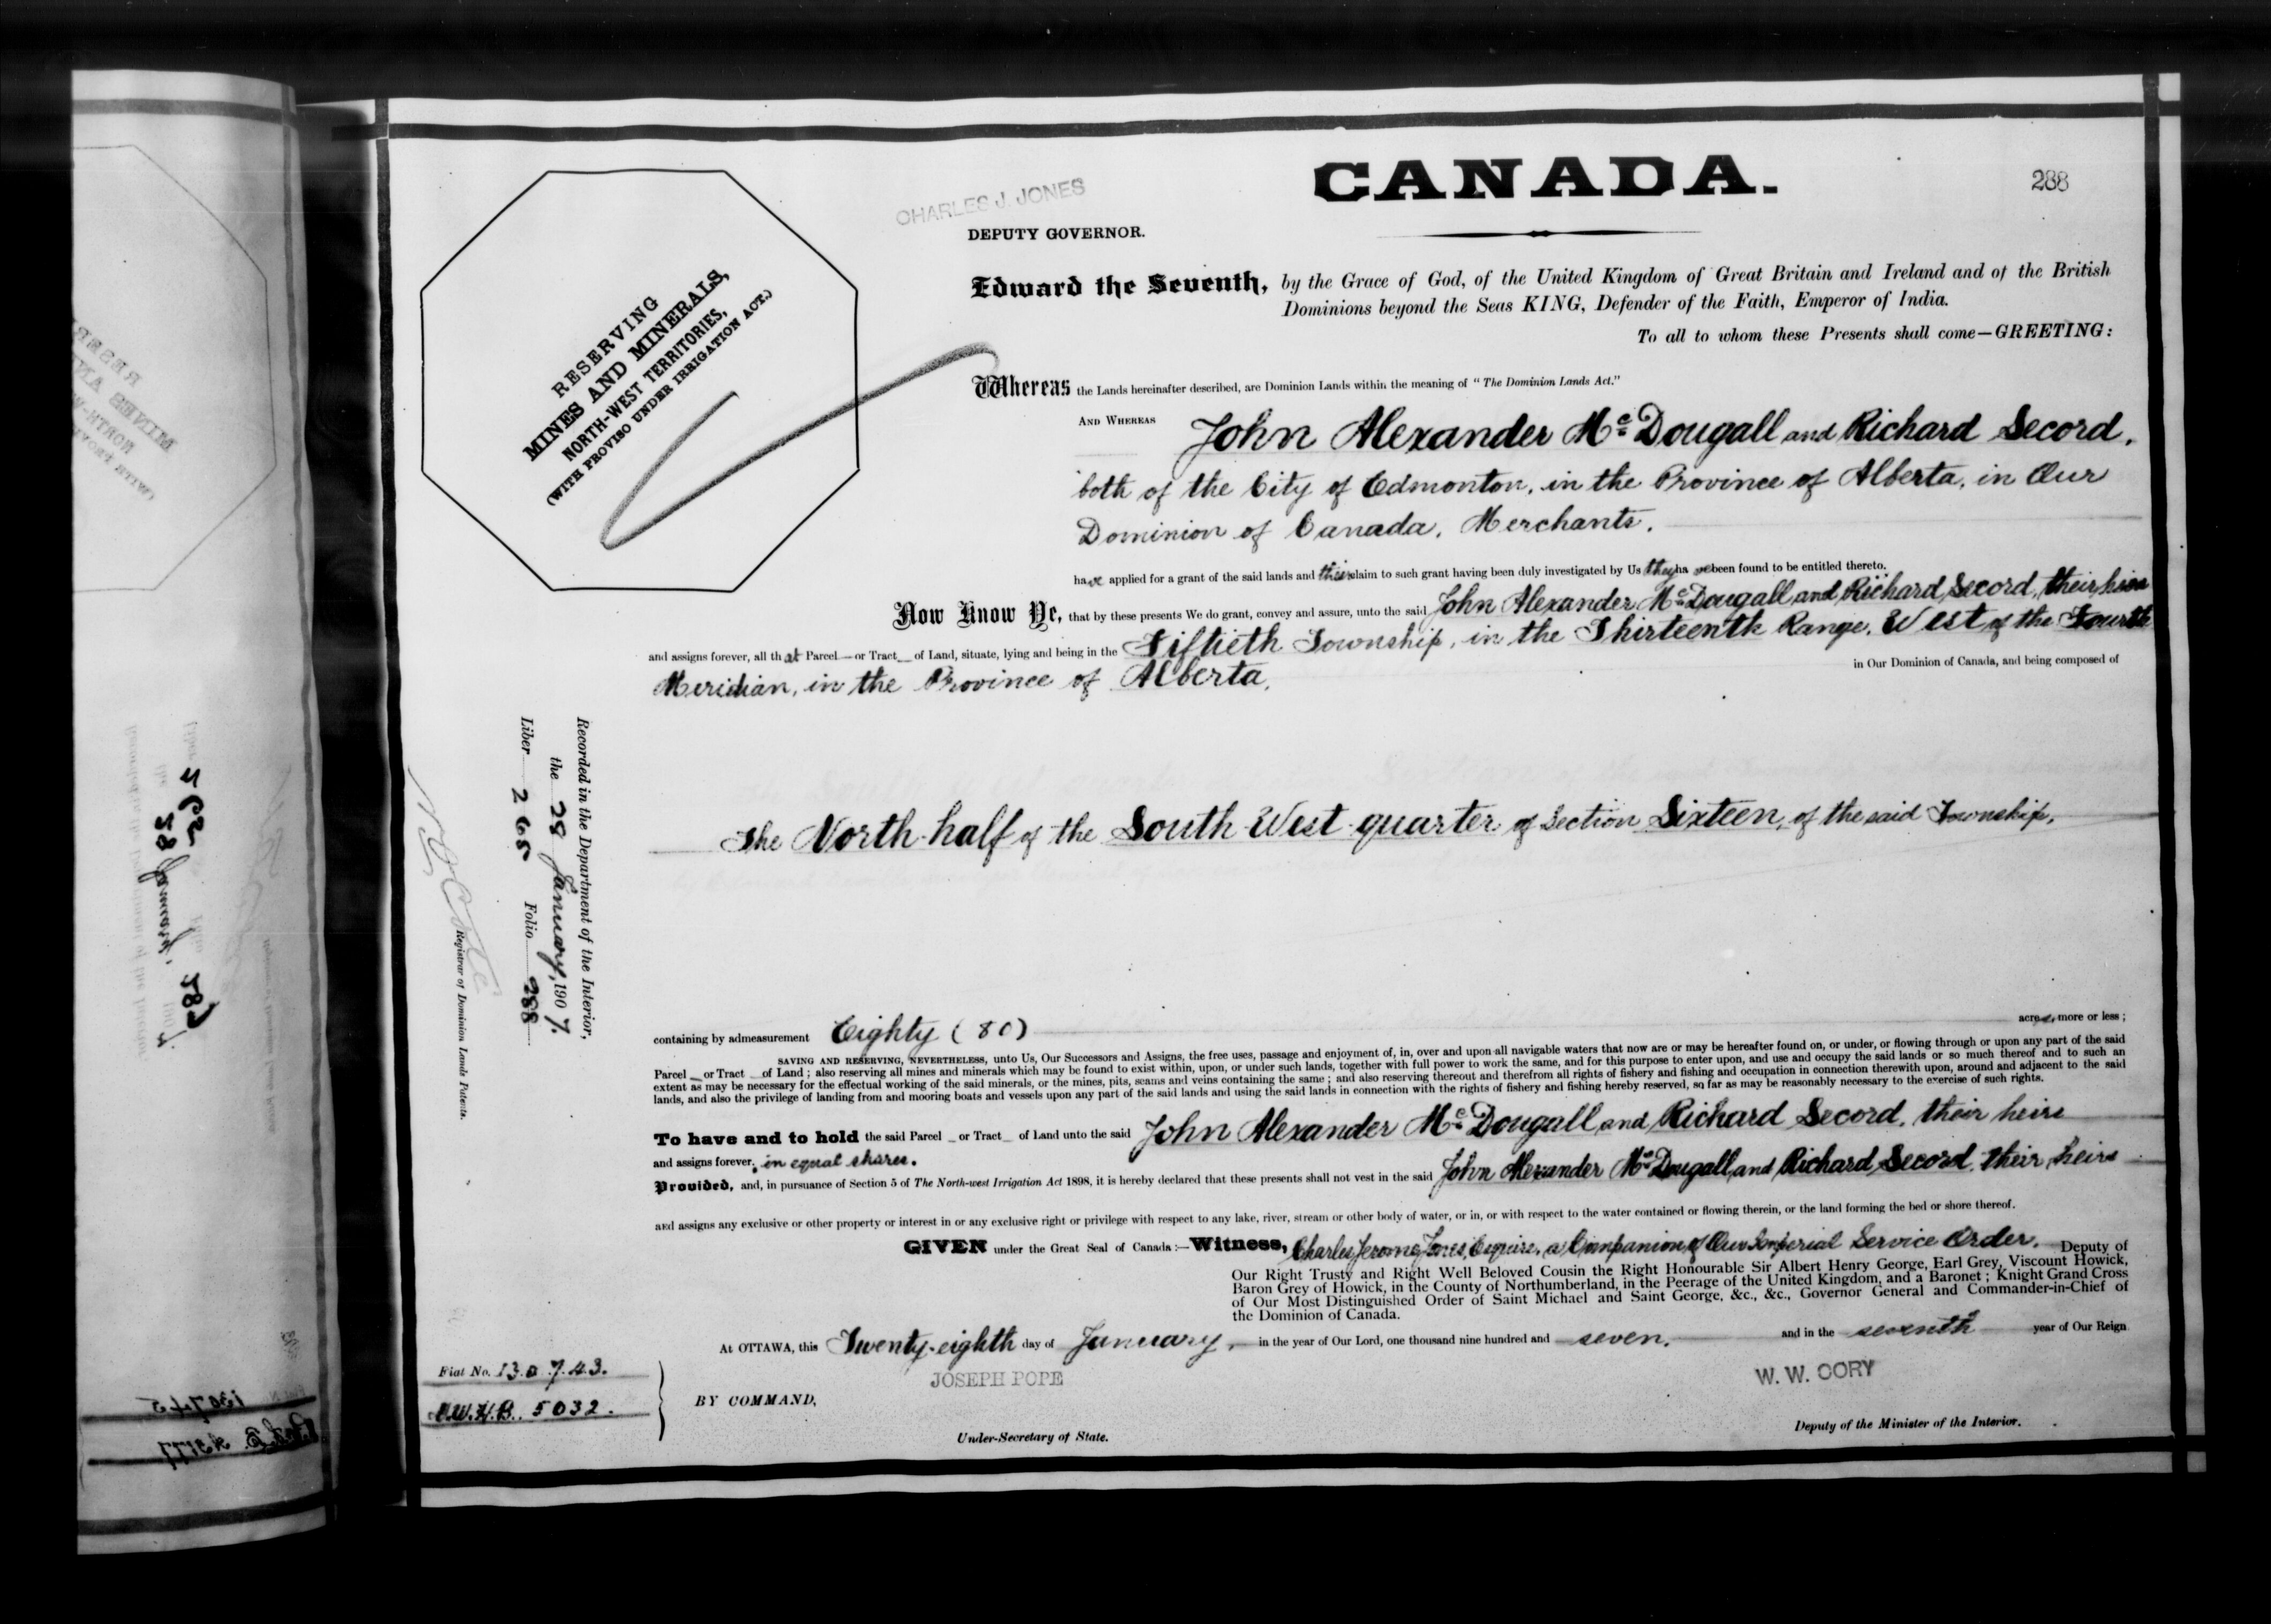 CANADA.
288
CHARLES J. JONES
DEPUTY GOVERNOR.
RESERVING
MINES AND MINERALS,
NORTH-WEST TERRITORIES,
(WITH PROVISO UNDER IRRIGATION ACT.)
Edward the Seventh, by the Grace of God, of the United Kingdom of Great Britain and Ireland and of the British
Dominions beyond the Seas KING, Defender of the Faith, Emperor of India.
To all to whom these Presents shall come—GREETING:
Whereas the Lands hereinafter described, are Dominion Lands within the meaning of "The Dominion Lands Act."
AND WHEREAS John Alexander McDougall and Richard Secord,
both of the City of Edmonton, in the Province of Alberta, in Our
Dominion of Canada, Merchants.
have applied for a grant of the said lands and their claim to such grant having been duly investigated by Us they have been found to be entitled thereto.
Now Know Ye, that by these presents We do grant, convey and assure, unto the said John Alexander McDougall and Richard Secord, their heirs
and assigns forever, all that Parcel or Tract of Land, situate, lying and being in the Fiftieth Township, in the Thirteenth Range, West of the Fourth
Meridian, in the Province of Alberta, in Our Dominion of Canada, and being composed of
The North half of the South West quarter of Section Sixteen, of the said Township,
Recorded in the Department of the Interior,
the 28 January, 1907.
Liber 265 Folio 288
Registrar of Dominion Lands Patents.
containing by admeasurement Eighty (80) acres, more or less;
SAVING AND RESERVING, NEVERTHELESS, unto Us, Our Successors and Assigns, the free uses, passage and enjoyment of, in, over and upon all navigable waters that now are or may be hereafter found on, or under, or flowing through or upon any part of the said
Parcel or Tract of Land; also reserving all mines and minerals which may be found to exist within, upon, or under such lands, together with full power to work the same, and for this purpose to enter upon, and use and occupy the said lands or so much thereof and to such an
extent as may be necessary for the effectual working of the said minerals, or the mines, pits, seams and veins containing the same; and also reserving thereout and therefrom all rights of fishery and fishing and occupation in connection therewith upon, around and adjacent to the said
lands, and also the privilege of landing from and mooring boats and vessels upon any part of the said lands and using the said lands in connection with the rights of fishery and fishing hereby reserved, so far as may be reasonably necessary to the exercise of such rights.
To have and to hold the said Parcel or Tract of Land unto the said John Alexander McDougall and Richard Secord, their heirs
and assigns forever, in equal shares.
Provided, and, in pursuance of Section 5 of The North-west Irrigation Act 1898, it is hereby declared that these presents shall not vest in the said John Alexander McDougall and Richard Secord, their heirs
and assigns any exclusive or other property or interest in or any exclusive right or privilege with respect to any lake, river, stream or other body of water, or in, or with respect to the water contained or flowing therein, or the land forming the bed or shore thereof.
GIVEN under the Great Seal of Canada:—Witness, Charles Jerome Jones, Esquire, a Companion of Our Imperial Service Order, Deputy of
Our Right Trusty and Right Well Beloved Cousin the Right Honourable Sir Albert Henry George, Earl Grey, Viscount Howick,
Baron Grey of Howick, in the County of Northumberland, in the Peerage of the United Kingdom, and a Baronet; Knight Grand Cross
of Our Most Distinguished Order of Saint Michael and Saint George, &c., &c., Governor General and Commander-in-Chief of
the Dominion of Canada.
At OTTAWA, this Twenty-eighth day of January, in the year of Our Lord, one thousand nine hundred and seven, and in the seventh year of Our Reign
JOSEPH POPE
W. W. CORY
Fiat No. 130743.
N.W.H.B. 5032.
BY COMMAND,
Under-Secretary of State.
Deputy of the Minister of the Interior.